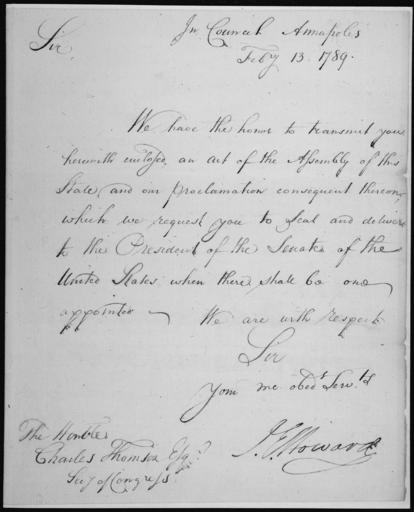 In Council Annapolis
Feby 13. 1789.
Sir
We have the honor to transmit you
herewith enclosed, an act of the Assembly of this
State, and our Proclamation consequent thereon,
which we request you to Seal and deliver
to the President of the Senate of the
United States, when there shall be one
appointed —
We are with respect
Sir
Your mo obedt. Servts
J E Howard
The Honble
Charles Thomson Esqr.
Secy of Congress